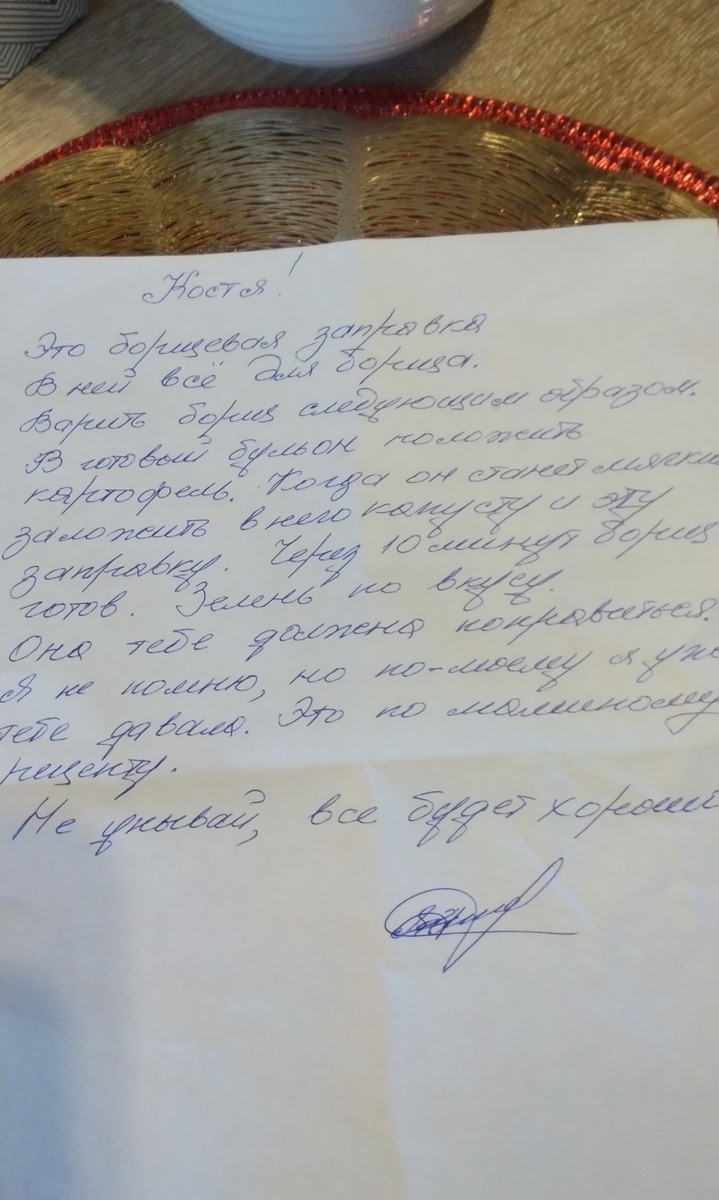 Костя!
Это борщевая заправка
В ней всё для борща.
Варить борщ следующим образом.
В готовый бульон положить
картофель. Когда он станет мягки
заложить в него капусту и эту
заправку. Через 10 минут борщ
готов. Зелень по вкусу.
Она тебе должна понравиться.
Я не помню, но по-моему я уже
тебе давала. Это по мамином
рецепту.
Не унывай, все будет хорошо